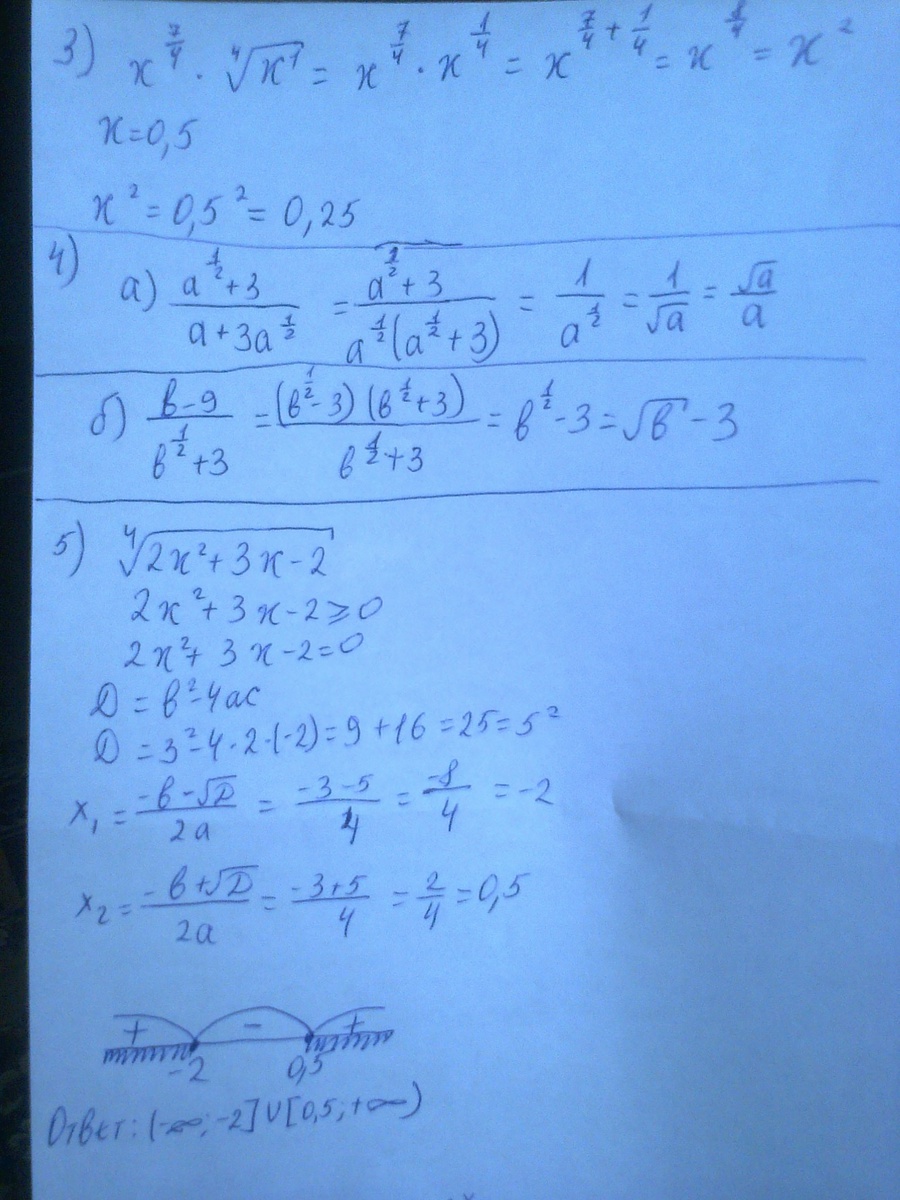 3) x^(7/4) · ⁴√x¹ = x^(7/4) · x^(1/4) = x^(7/4 + 1/4) = x^(8/4) = x²
x=0,5
x² = 0,5² = 0,25
4) а) (a^(1/2)+3)/(a+3a^(1/2)) = (a^(1/2)+3)/(a^(1/2)(a^(1/2)+3)) = 1/a^(1/2) = 1/√a = √a/a
б) (b-9)/(b^(1/2)+3) = (b^(1/2)-3)(b^(1/2)+3)/(b^(1/2)+3) = b^(1/2)-3 = √b - 3
5) ⁴√(2x²+3x-2)
2x²+3x-2≥0
2x²+3x-2=0
D = b²-4ac
D = 3²-4·2·(-2)=9+16=25=5²
x₁ = (-b-√D)/2a = (-3-5)/4 = -8/4 = -2
x₂ = (-b+√D)/2a = (-3+5)/4 = 2/4 = 0,5
+ - +
-2 0,5
Ответ: (-∞; -2]∪[0,5; +∞)